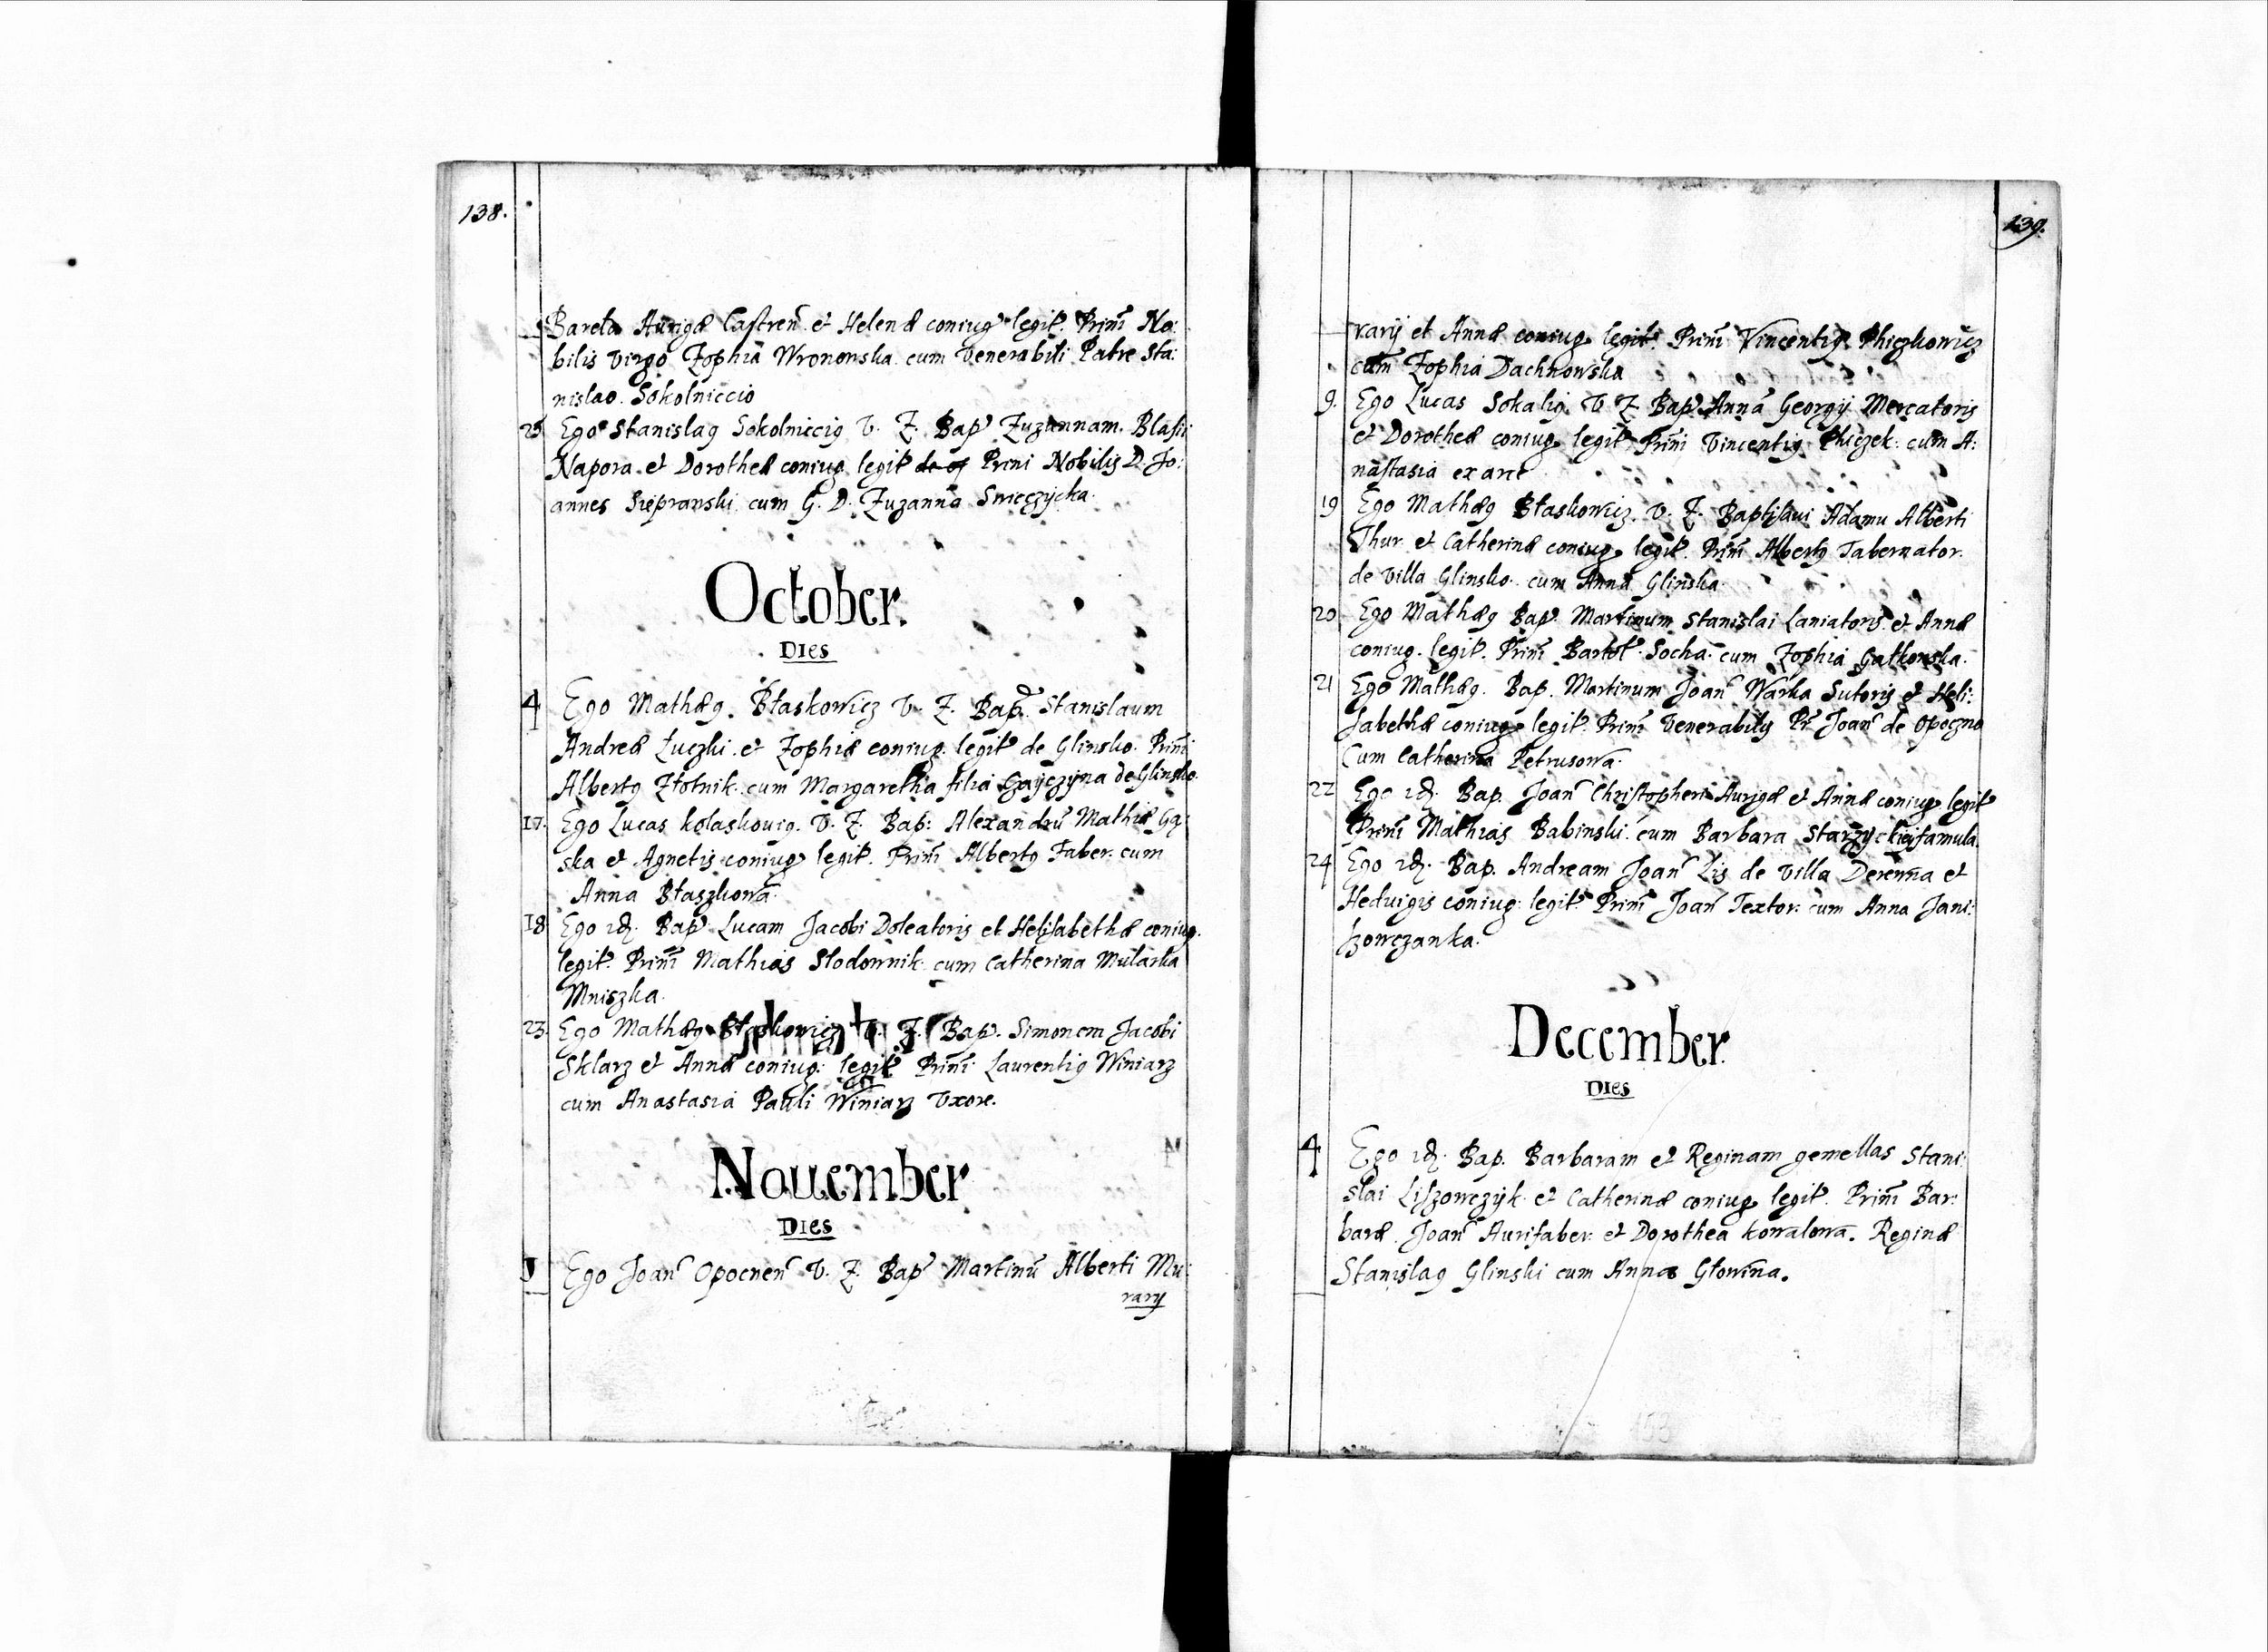 138.
Bareta Aurigæ Castren. et Helenæ coniug legit. Prini No:
bilis Virgo Zophia Wronowska cum Venerabili Patre Sta:
nislao Sokolniccio
25 Ego Stanislaꝰ Sokolnicciꝰ V. Z. Bap Zuzannam Blasii
Napora et Dorotheæ coniug legit Prini Nobilis D. Jo:
annes Siepranski cum G. D. Zuzanna Swieczycka.
October.
DIES
4 Ego Mathæꝰ Błaskowicz V. Z. Bap Stanislaum
Andreæ Zuczki et Zophiæ coniug. legit de Glinsko. Prini
Albertꝰ Złotnik cum Margaretha filia de Glinsko
17. Ego Lucas V. Z. Bap: Alexandrū Mathiæ Gą:
ska et Agnetis coniug legit. Prini Albertꝰ Faber cum
Anna Błaszkowa
18 Ego idꝫ Bap Lucam Jacobi Doleatoris et Helisabethæ coniug.
legit. Prini Mathias Słodownik cum Catherina Mularka
Mniszka.
23. Ego Mathæꝰ Błaskowicz V. Z. Bap. Simonem Jacobi
Sklarz et Annæ coniug: legit Prini Laurentiꝰ Winiarz
cum Anastasia Pauli Winiarz Vxore.
Nouember
DIES
1 Ego Joan Opocnen V. Z. Bap Martinū Alberti Mu:
rarij
139.
rarij et Annæ coniug legit Prini Vincentiꝰ Phiczkowicz
cum Zophia Dachnowska
9. Ego Lucas Sokaliꝰ V. Z. Bap. Annā Georgij Mercatoris
et Dorotheæ coniug legit Prini Vincentiꝰ Phiczek cum A:
nastasia ex arce
19 Ego Mathæꝰ Błaskowicz. V. Z. Baptisaui Adamu Alberti
Thur et Catherinæ coniug legit. Prini Albertꝰ Tabernator.
de villa Glinsko cum Anna Glinska
20 Ego Mathæꝰ Bap Martinum Stanislai Laniatoris et Annæ
coniug. legit. Prini Bartol. Socha cum Zophia Gałkowska.
21 Ego Mathæꝰ. Bap. Martinum Joan Warka Sutoris et Heli:
sabethæ coniug legit Prini Venerabilis Joan de Opoczno
Cum Catherina Petrusowa.
22 Ego idꝫ Bap. Joan Christopheri Aurigæ et Annæ coniug legit
Prini Mathias Babinski cum Barbara Starzyckiey famula.
24 Ego idꝫ. Bap. Andream Joan Lis de villa Derewna et
Hedvigis coniug: legit Prini Joan Textor cum Anna Jani:
szowczanka.
December.
DIES
4 Ego idꝫ. Bap. Barbaram et Reginam gemellas Stani:
slai Liszowczyk et Catherinæ coniug legit. Prini Bar:
baræ. Joan Aurifaber et Dorothea kowalowa. Reginæ
Stanislaꝰ Glinski cum Anna Głowina.